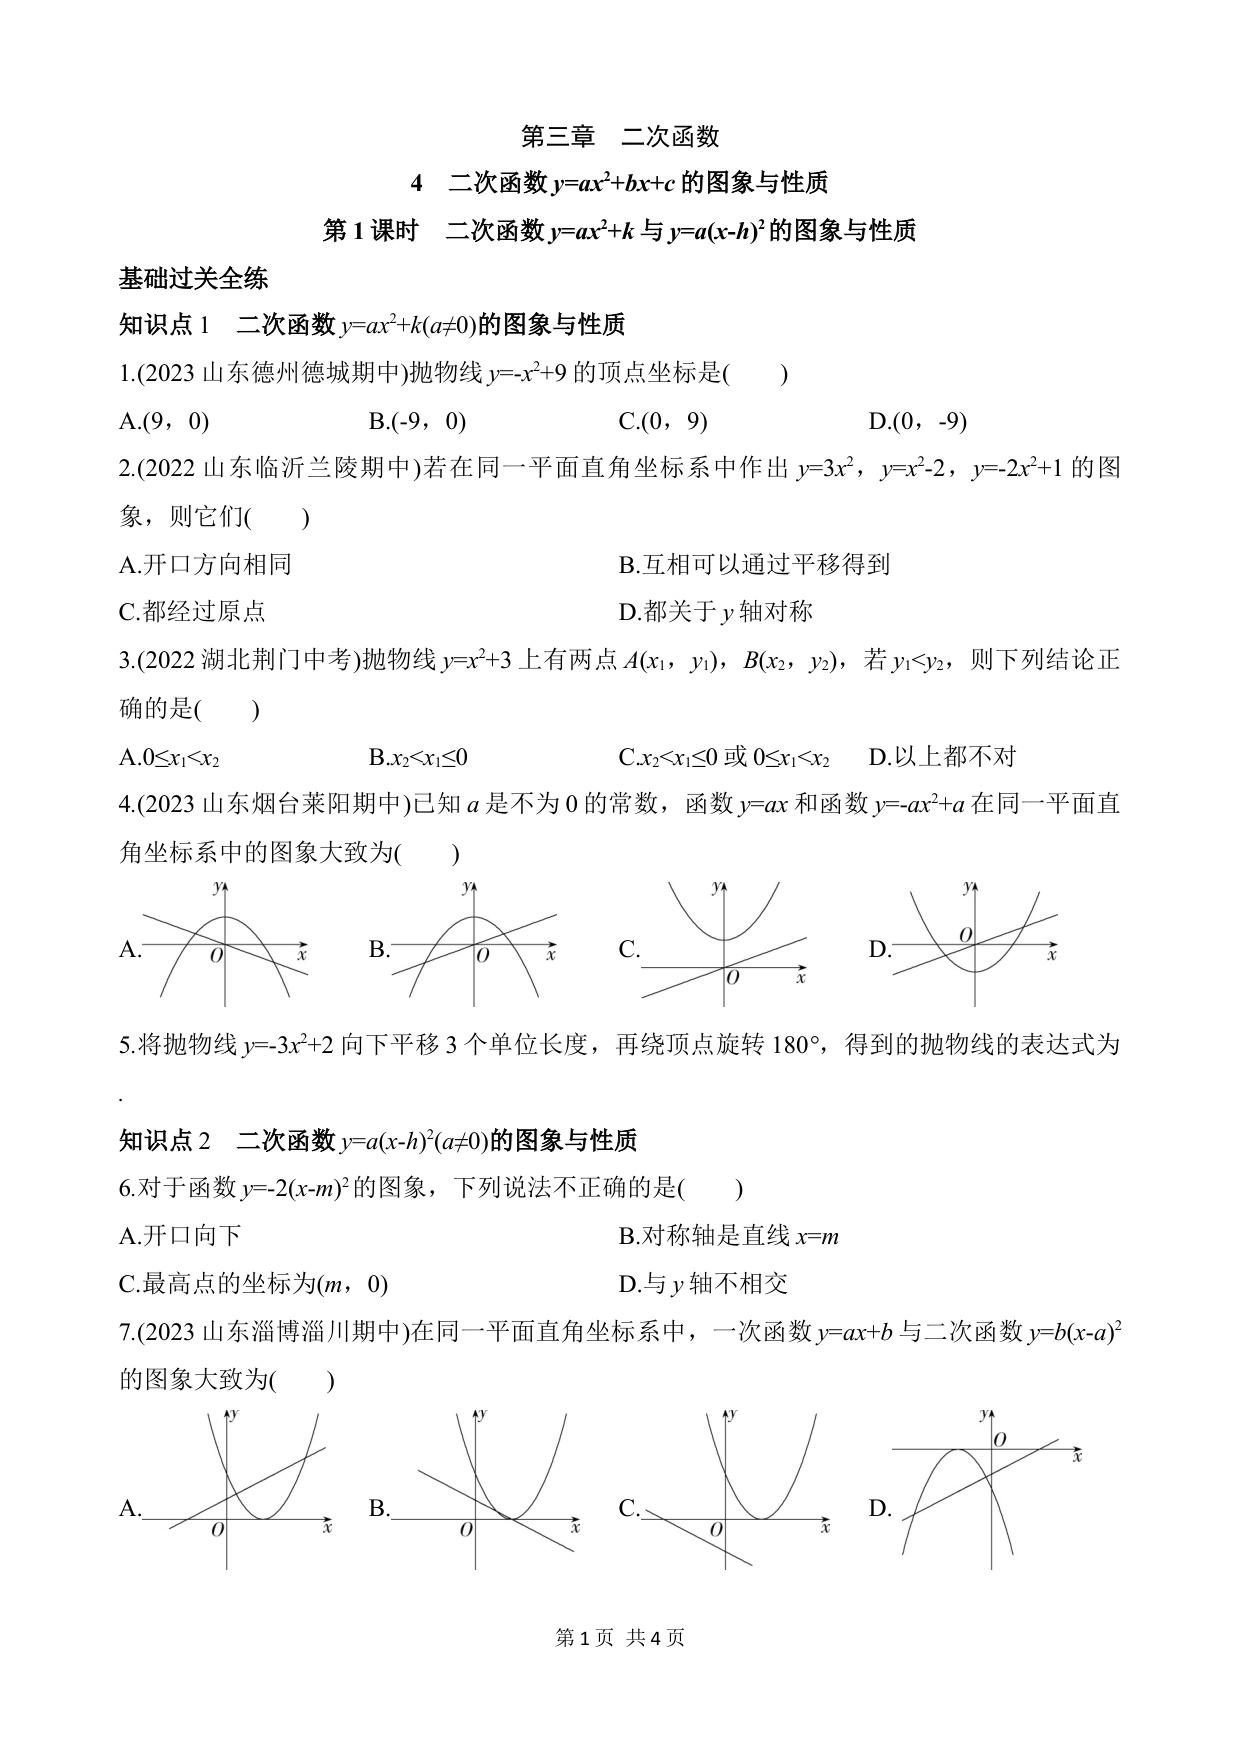 第三章　二次函数
4　二次函数y=ax²+bx+c的图象与性质
第1课时　二次函数y=ax²+k与y=a(x-h)²的图象与性质
基础过关全练
知识点1　二次函数y=ax²+k(a≠0)的图象与性质
1.(2023山东德州德城期中)抛物线y=-x²+9的顶点坐标是(　　)
A.(9，0)　B.(-9，0)　C.(0，9)　D.(0，-9)
2.(2022山东临沂兰陵期中)若在同一平面直角坐标系中作出y=3x²，y=x²-2，y=-2x²+1的图
象，则它们(　　)
A.开口方向相同　B.互相可以通过平移得到
C.都经过原点　D.都关于y轴对称
3.(2022湖北荆门中考)抛物线y=x²+3上有两点A(x₁，y₁)，B(x₂，y₂)，若y₁<y₂，则下列结论正
确的是(　　)
A.0≤x₁<x₂　B.x₂<x₁≤0　C.x₂<x₁≤0或0≤x₁<x₂　D.以上都不对
4.(2023山东烟台莱阳期中)已知a是不为0的常数，函数y=ax和函数y=-ax²+a在同一平面直
角坐标系中的图象大致为(　　)
A. y O x　B. y O x　C. y O x　D. y O x
5.将抛物线y=-3x²+2向下平移3个单位长度，再绕顶点旋转180°，得到的抛物线的表达式为
.
知识点2　二次函数y=a(x-h)²(a≠0)的图象与性质
6.对于函数y=-2(x-m)²的图象，下列说法不正确的是(　　)
A.开口向下　B.对称轴是直线x=m
C.最高点的坐标为(m，0)　D.与y轴不相交
7.(2023山东淄博淄川期中)在同一平面直角坐标系中，一次函数y=ax+b与二次函数y=b(x-a)²
的图象大致为(　　)
A. y O x　B. y O x　C. y O x　D. y O x
第1页 共4页